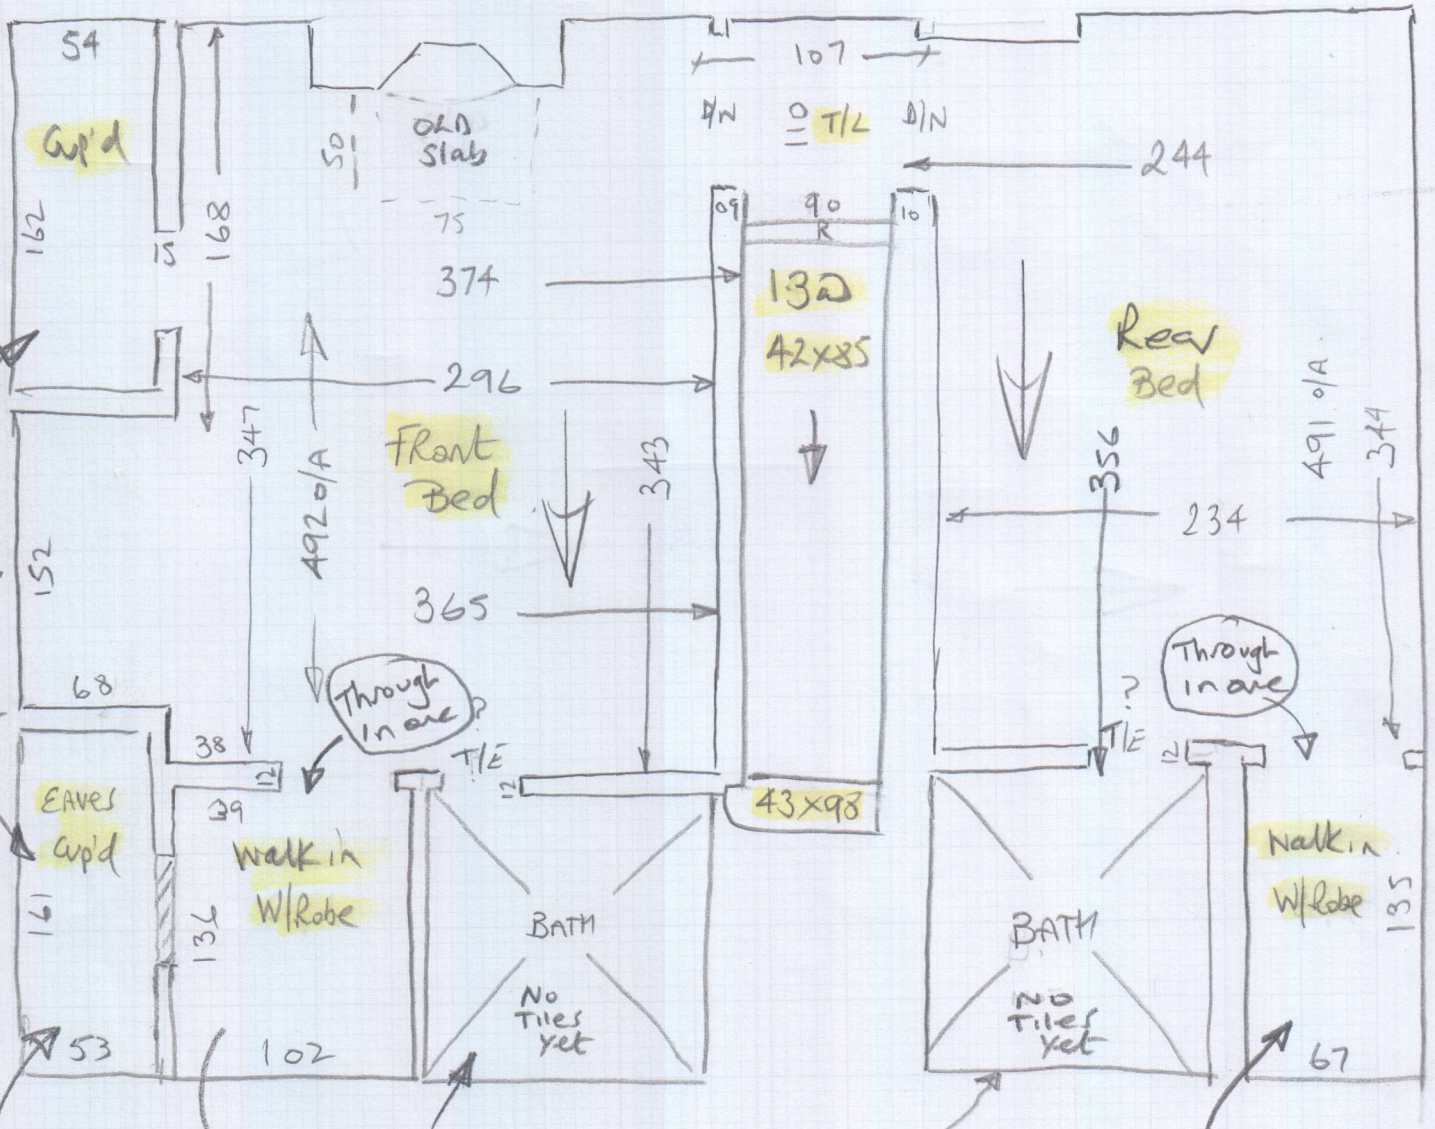 54
Cup'd
162
15
168
50
OLD
Slab
75
107
D/W
10
T/L
D/N
244
09
90
10
R
374
13D
42x85
296
347
492 O/A
Front
Bed
343
365
Rear
Bed
356
491 O/A
344
234
152
68
38
12
39
Through
in one
?
T/E
12
43x98
Through
in one
?
T/E
12
Eaves
Cup'd
161
53
Walk in
W/Robe
136
102
BATH
No
Tiles
Yet
BATH
No
Tiles
Yet
Walk in
W/Robe
135
67